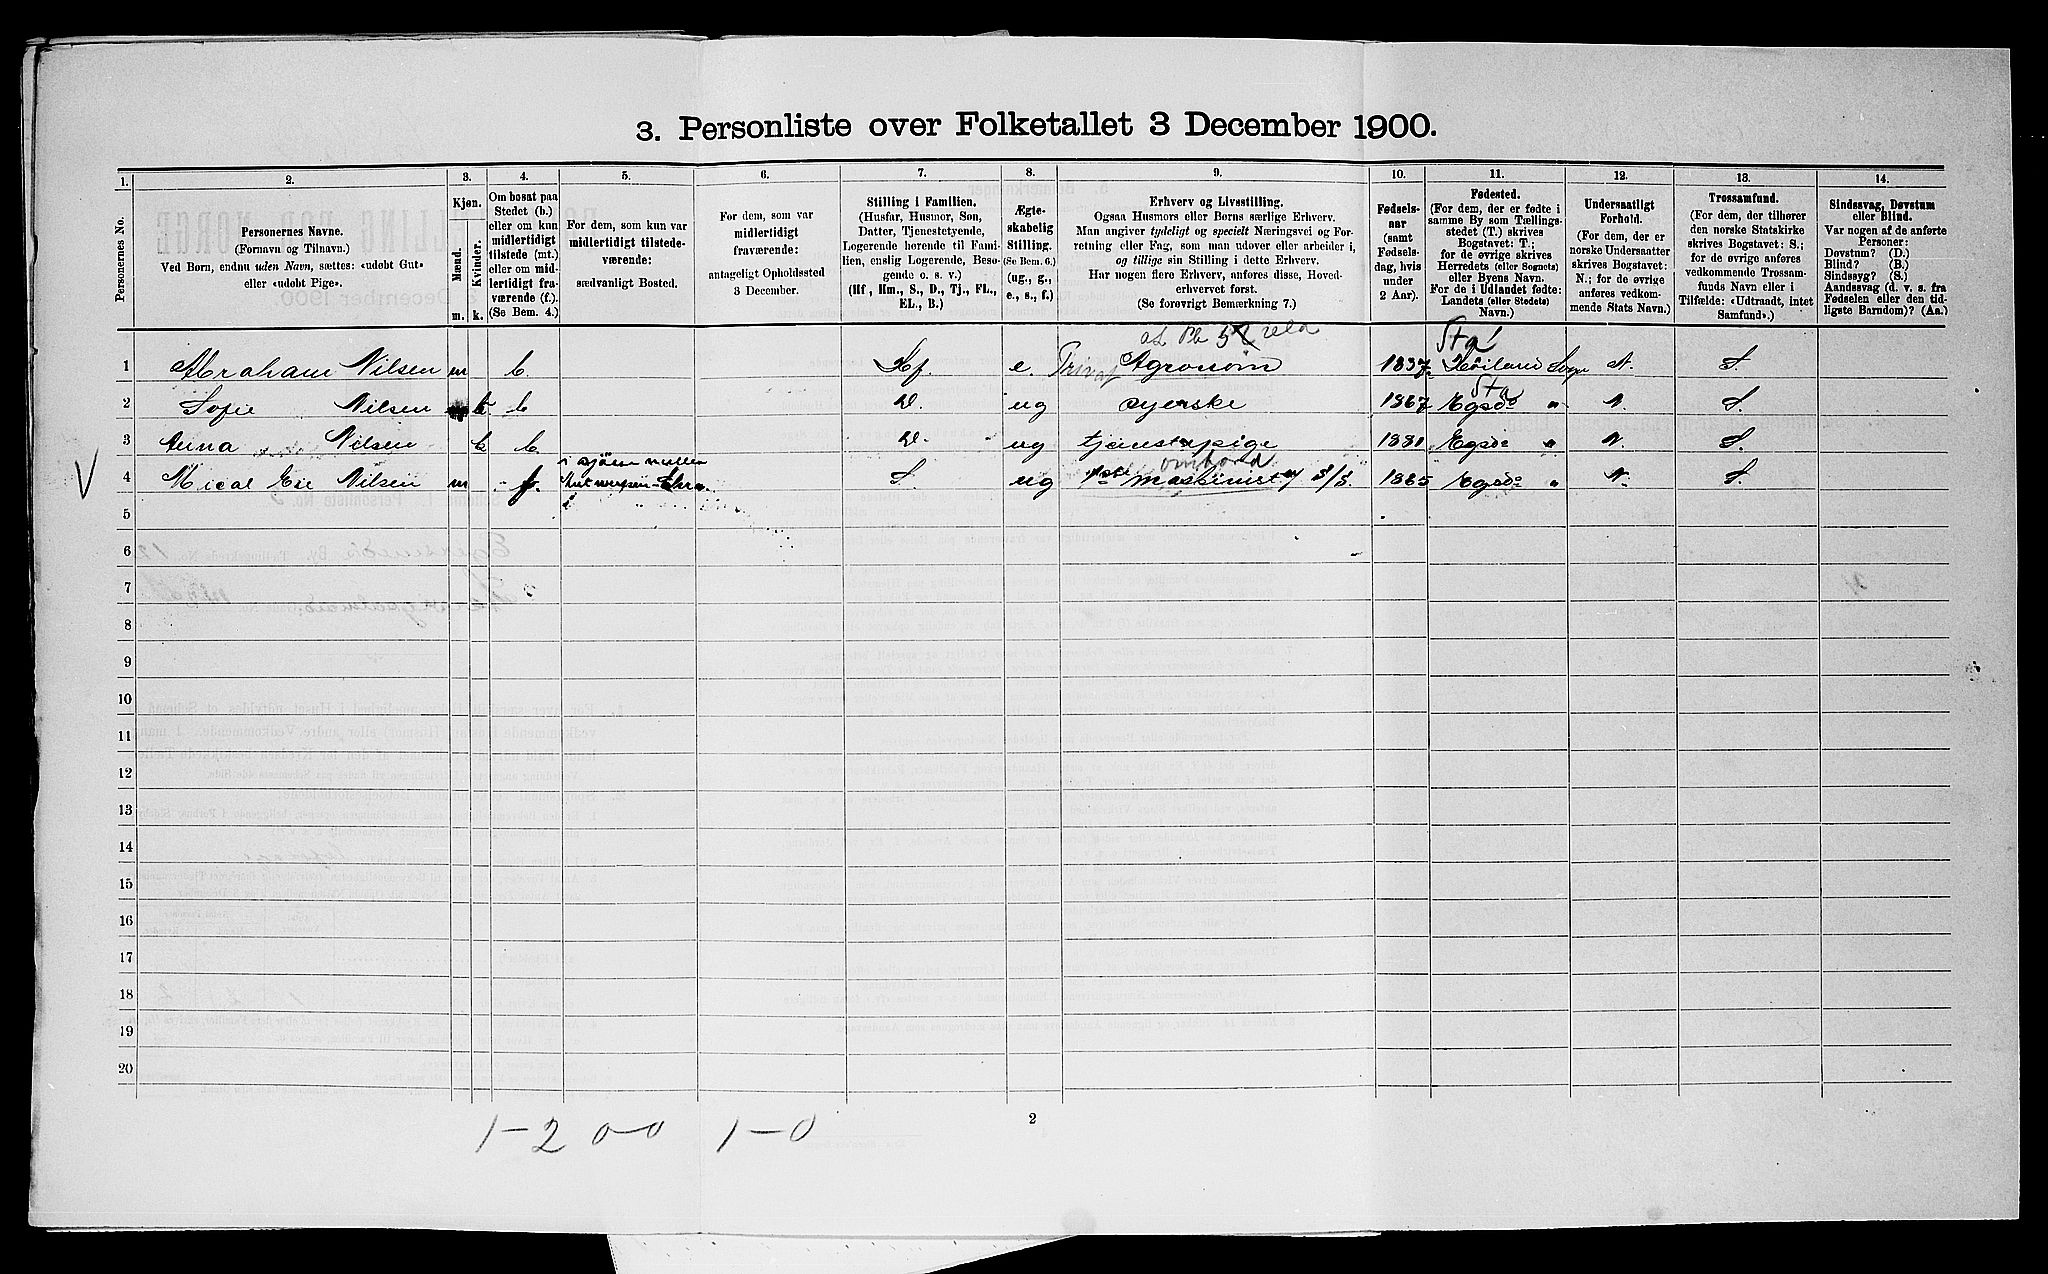 3. Personliste over Folketallet 3 December 1900.
1. 2. 3. 4. 5. 6. 7. 8. 9. 10. 11. 12. 13. 14.
Personernes No.
Personernes Navne.
(Fornavn og Tilnavn.)
Ved Børn, endnu uden Navn, sættes: «udøbt Gut»
eller «udøbt Pige».
Kjøn.
Mænd.
Kvinder.
m. k.
Om bosat paa
Stedet (b.)
eller om kun
midlertidigt
tilstede (mt.)
eller om mid-
lertidigt fra-
værende (f.)
(Se Bem. 4.)
For dem, som kun var
midlertidigt tilstede-
værende:
sædvanligt Bosted.
For dem, som var
midlertidigt
fraværende:
antageligt Opholdssted
3 December.
Stilling i Familien.
(Husfar, Husmor, Søn,
Datter, Tjenestetyende,
Logerende hørende til Fami-
lien, enslig Logerende, Besø-
gende o. s. v.)
(Hf., Hm., S., D., Tj., FL.,
EL., B.)
Ægte-
skabelig
Stilling.
(Se Bem. 6.)
(ug., g.,
e., s., f.)
Erhverv og Livsstilling.
Ogsaa Husmors eller Børns særlige Erhverv.
Man angiver tydeligt og specielt Næringsvei og For-
retning eller Fag, som man udøver eller arbeider i,
og tillige sin Stilling i dette Erhverv.
Har nogen flere Erhverv, anføres disse, Hoved-
erhvervet først.
(Se forøvrigt Bemærkning 7.)
Fødsels-
aar
(samt
Fødsels-
dag, hvis
under
2 Aar).
Fødested.
(For dem, der er fødte i
samme By som Tællings-
stedet (T.) skrives
Bogstavet: T.;
for de øvrige skrives
Herredets (eller Sognets)
eller Byens Navn.
For de i Udlandet fødte:
Landets (eller Stedets)
Navn.)
Undersaatligt
Forhold.
(For dem, der er
norske Undersaatter
skrives Bogstavet:
N.; for de øvrige
anføres vedkom-
mende Stats Navn.)
Trossamfund.
(For dem, der tilhører
den norske Statskirke
skrives Bogstavet: S.;
for de øvrige anføres
vedkommende Trossam-
funds Navn eller i
Tilfælde: «Udtraadt, intet
Samfund».)
Sindssvag, Døvstum
eller Blind.
Var nogen af de anførte
Personer:
Døvstum? (D.)
Blind? (B.)
Sindssyg? (S.)
Aandssvag (d. v. s. fra
Fødselen eller den tid-
ligste Barndom)? (Aa.)
Sta!
1 Abraham Nilsen m b. Hf. e. Privat Agronom 1837 Høiland Sogn N. S.
Sta
2 Sofie Nilsen k b D. ug syerske 1867 Egsd " N. S.
3 Anna Nilsen k b D. ug tjenstepige 1881 Egsd " N. S.
i sjöen mellem ombord
V 4 Mical Nilsen m f. Antwerpen S. ug maskinist S/S. 1865 Egsd " N. S.
5
6
7
8
9
10
11
12
13
14
15
16
17
18
19
20
1-2 0-0 1-0
2